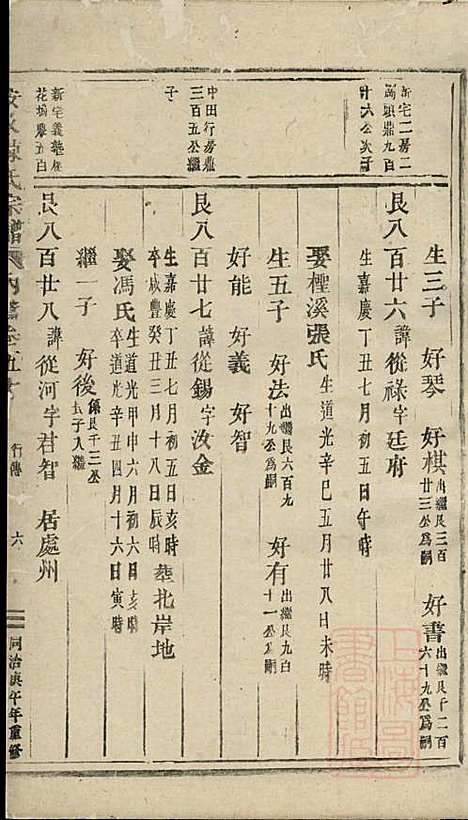 生三子 好琴 好棋 出繼良三百廿三公爲嗣 好書 出繼良千二百六十九公爲嗣
新宅二房二
鼎九百
廿六公次子
良八百廿六 諱從祿 字廷府
生嘉慶丁丑七月初五日午時
娶樫溪張氏 生道光辛巳五月廿八日未時
生五子 好法 出繼良六百九十九公爲嗣 好有 出繼良九百十一公爲嗣
好能 好義 好智
中田行房鼎
三百五公繼
子
良八百廿七 諱從錫 字汝金
生嘉慶丁丑七月初五日亥時
卒咸豐癸丑三月十八日辰時 葬北岸地
娶馮氏 生道光甲申六月初六日亥時
卒道光辛丑四月十六日寅時
繼一子 好後 係良千三公 子入繼
新宅義
花 鼎五百
良八百廿八 諱從河 字君智 居處州
陳氏宗譜 行傳 六 同治庚午年重修